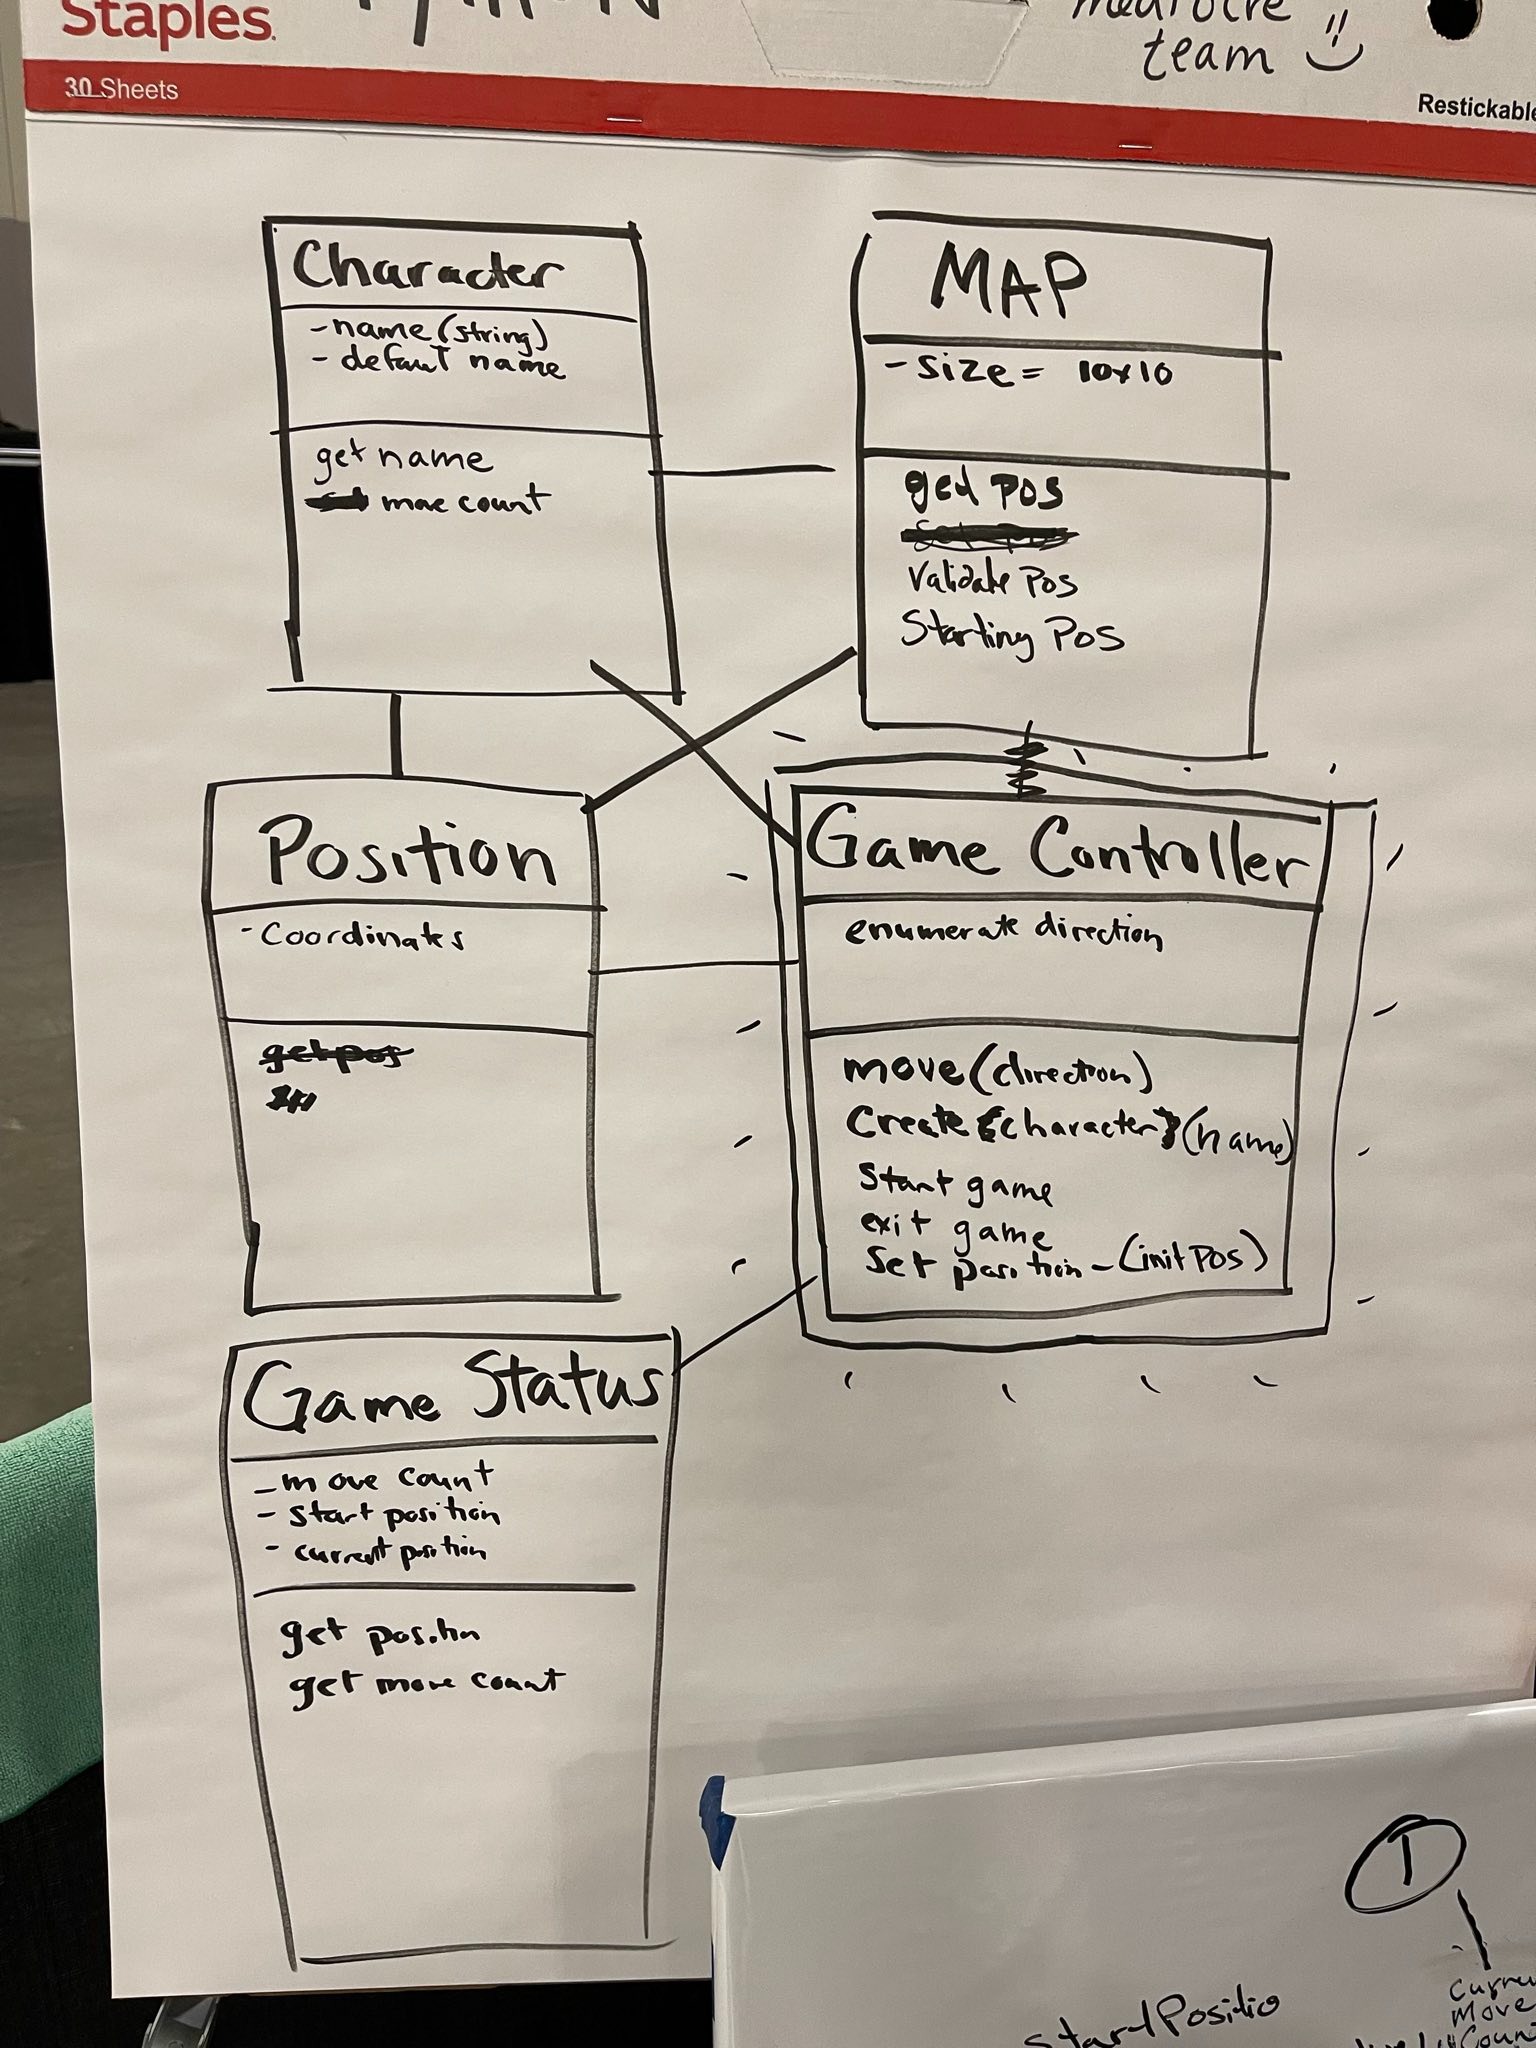 Staples
mediocre
team
30 Sheets
Restickable
Character
- name (string)
- default name
get name
count
MAP
- size = 10x10
get pos
Validate Pos
Starting Pos
Position
- Coordinates
get pos
Game Controller
enumerate direction
move (direction)
Create {character} (name)
Start game
exit game
Set position - (init Pos)
Game Status
- move count
- start position
- current position
get position
get move count
1
Move
StartPositio